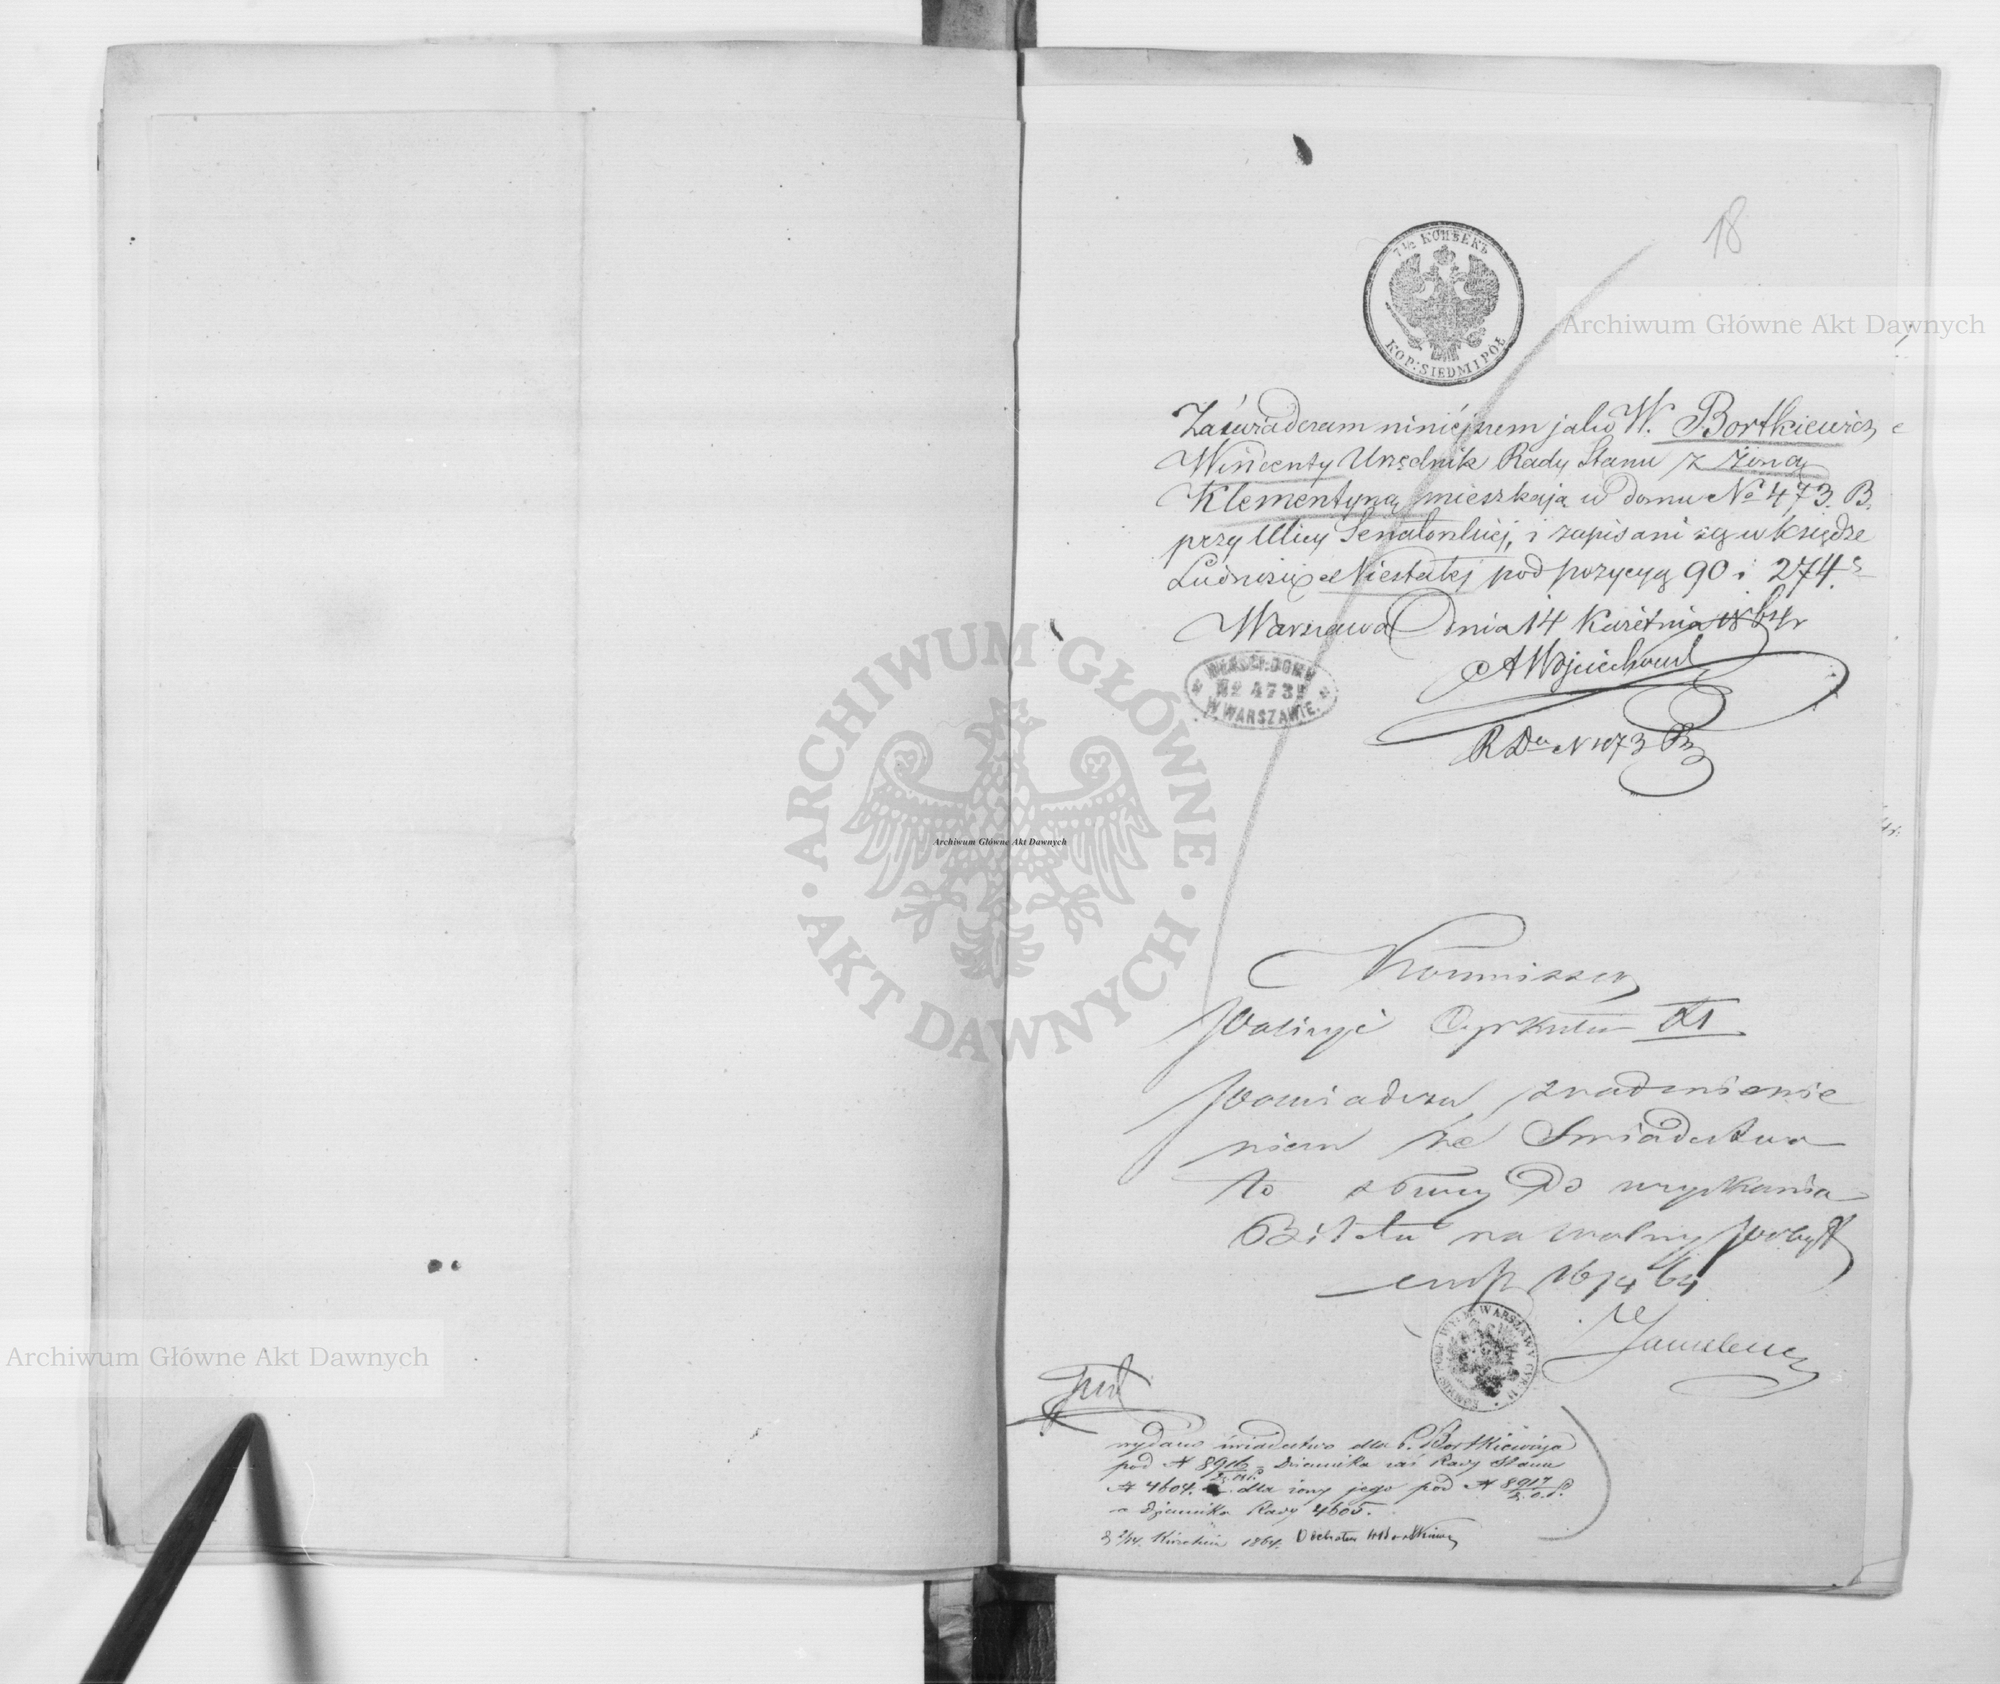 18
7 1/2 КОПѢЕКЪ
KOP: SIEDM I PÓŁ
Archiwum Główne Akt Dawnych
Zaświadczam niniéjszem jako W. Bortkiewicz
Wincenty Urzędnik Rady Stanu z żoną
Klementyną mieszkają w domu No 473. B.
przy Ulicy Senatorskiej, i zapisani są w Księdze
Ludności Niestałej pod pozycyą 90 i 274.
Warszawa dnia 14 Kwietnia 1864 r
A Wojciechowski
R Du N 473 B
W WARSZAWIE.
ARCHIWUM GŁÓWNE
AKT DAWNYCH
Archiwum Główne Akt Dawnych
Kommissarz
Policyi Cyrkułu
Poświadcza, z nadmienieniem
że Świadectwo
to służy do uzyskania
Biletu na wolny pobyt
16/4 64
Archiwum Główne Akt Dawnych
wydano świadectwo dla P. Bortkiewicza
pod N 8916 Dziennika zaś Rady Stanu
N 4604. dla żony jego pod N 8917
a Dziennika Rady 4605.
d 2/14 Kwietnia 1864. Odebrałem WBortkiewicz